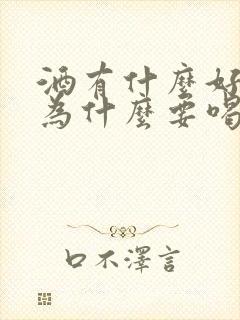 酒有什麼好
為什麼要喝
口不澤言